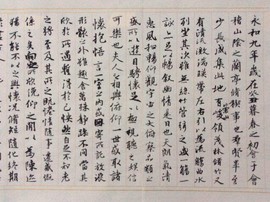 永和九年歲在癸丑暮春之初會于會
稽山陰之蘭亭脩禊事也群賢畢至
少長咸集此地有崇山峻領茂林脩竹又
有清流激湍暎帶左右引以為流觴曲水
列坐其次雖無絲竹管弦之盛一觴一
詠亦足以暢敘幽情是日也天朗氣清
惠風和暢仰觀宇宙之大俯察品類之
盛所以遊目騁懷足以極視聽之娛信
可樂也夫人之相與俯仰一世或取諸
懷抱悟言一室之內或因寄所託放浪
形骸之外雖趣舍萬殊靜躁不同當其
欣於所遇暫得於己快然自足不知老
之將至及其所之既惓情隨事遷感慨
係之矣向之所欣俛仰之間以為陳迹
猶不能不以之興懷況脩短隨化終期